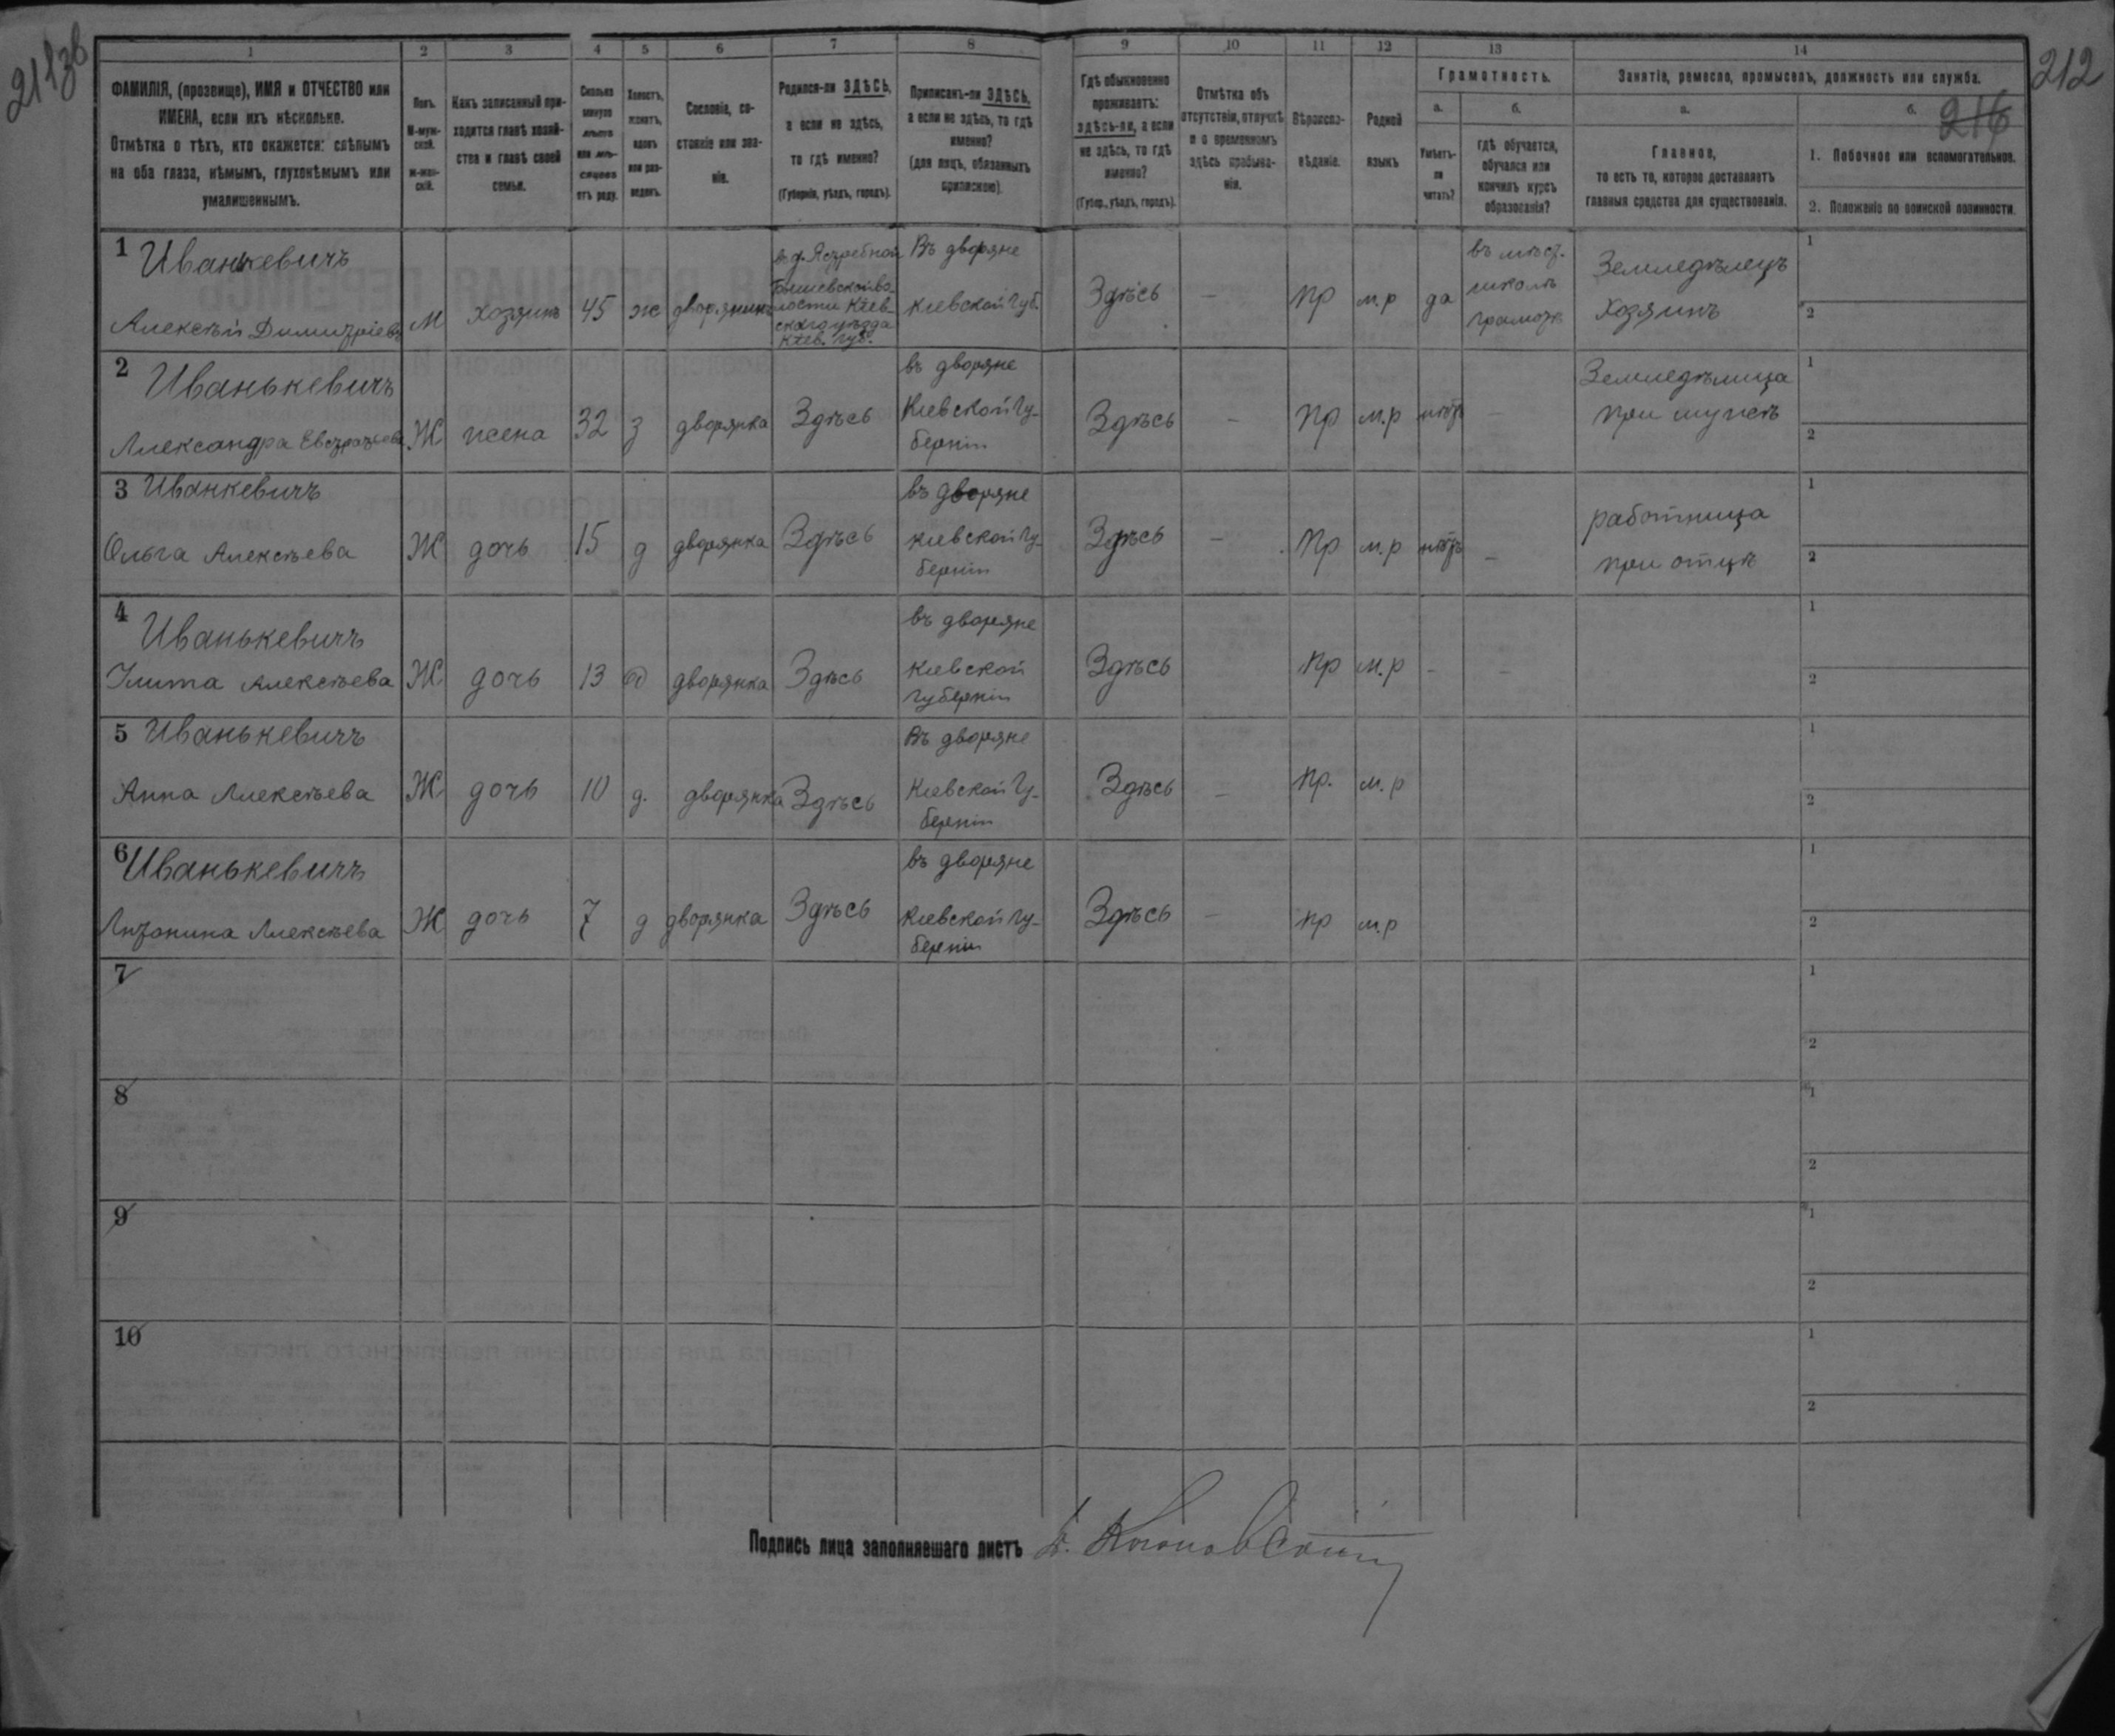 211зв
212
216
1
2
3
4
5
6
7
8
9
10
11
12
13
14
ФАМИЛІЯ, (прозвище), ИМЯ и ОТЧЕСТВО или
ИМЕНА, если ихъ нѣсколько.
Отмѣтка о тѣхъ, кто окажется: слѣпымъ
на оба глаза, нѣмымъ, глухонѣмымъ или
умалишеннымъ.
Полъ.
М-муж-
ской.
Ж-жен-
скій.
Какъ записанный при-
ходится главѣ хозяй-
ства и главѣ своей
семьи.
Сколько
минуло
лѣтъ
или мѣ-
сяцевъ
отъ роду.
Холостъ,
женатъ,
вдовъ
или раз-
веденъ.
Сословіе, со-
стояніе или зва-
ніе.
Родился-ли ЗДѢСЬ,
а если не здѣсь,
то гдѣ именно?
(Губернія, уѣздъ, городъ).
Приписанъ-ли ЗДѢСЬ,
а если не здѣсь, то гдѣ
именно?
(для лицъ, обязанныхъ
припискою).
Гдѣ обыкновенно
проживаетъ:
здѣсь-ли, а если
не здѣсь, то гдѣ
именно?
(Губер., уѣздъ, городъ).
Отмѣтка объ
отсутствіи, отлучкѣ
и о временномъ
здѣсь пребыва-
ніи.
Вѣроиспо-
вѣданіе.
Родной
языкъ
Грамотность.
а.
б.
Умѣетъ-
ли
читать?
гдѣ обучается,
обучался или
кончилъ курсъ
образованія?
Занятіе, ремесло, промыселъ, должность или служба.
а.
б.
Главное,
то есть то, которое доставляетъ
главныя средства для существованія.
1. Побочное или вспомогательное.
2. Положеніе по воинской повинности.
1 Иванькевичъ
Алексѣй Димитріевъ
М
хозяинъ
45
ж
дворянинъ
въ д. Ястребной
волости Кіев-
скаго уѣзда
Кіев. губ.
Въ дворяне
Кіевской губ.
Здѣсь
-
пр
м.р
да
школѣ
Земледѣлецъ
хозяинъ
1
2
2 Иванькевичъ
Александра Евстратьева
Ж
жена
32
з
дворянка
Здѣсь
въ дворяне
Кіевской гу-
берніи
Здѣсь
-
пр
м.р
нѣтъ
-
Земледѣлица
при мужѣ
1
2
3 Иванкевичъ
Ольга Алексѣева
Ж
дочь
15
д
дворянка
Здѣсь
въ дворяне
Кіевской гу-
берніи
Здѣсь
-
Пр
м.р
нѣтъ
-
работница
при отцѣ
1
2
4 Иванькевичъ
Улита Алексѣева
Ж
дочь
13
д
дворянка
Здѣсь
въ дворяне
Кіевской
губерніи
Здѣсь
пр
м.р
-
-
1
2
5 Иванькевичъ
Анна Алексѣева
Ж
дочь
10
д.
дворянка
Здѣсь
Въ дворяне
Кіевской гу-
берніи
Здѣсь
-
пр.
м.р
1
2
6 Иванькевичъ
Антонина Алексѣева
Ж
дочь
7
д
дворянка
Здѣсь
въ дворяне
Кіевской гу-
берніи
Здѣсь
-
пр
м.р
1
2
7
1
2
8
1
2
9
1
2
10
1
2
Подпись лица заполнявшаго листъ